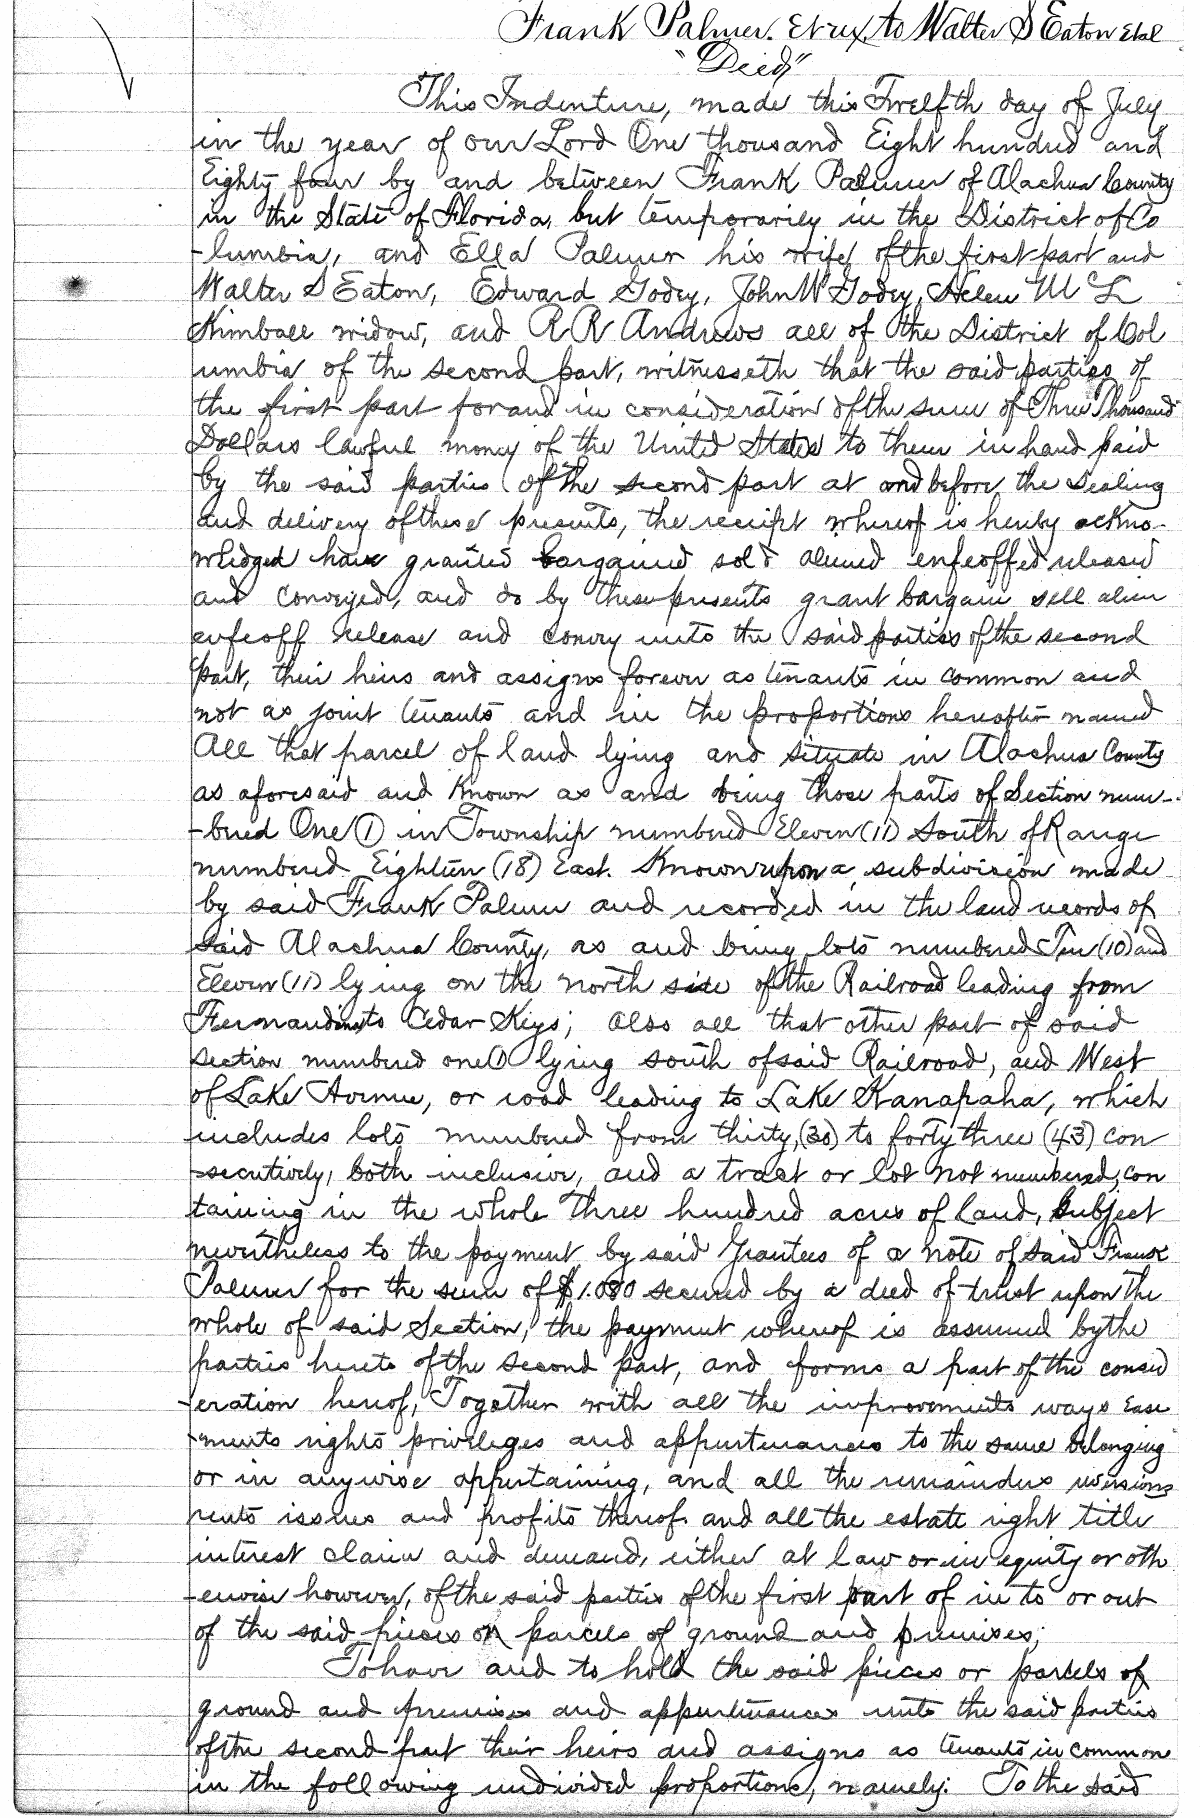 Frank Palmer. Et ux, to Walter S Eaton Etal
"Deed"
This Indenture, made this Twelfth day of July
in the year of our Lord One thousand Eight hundred and
Eighty four by and between Frank Palmer of Alachua County
in the State of Florida, but temporarily in the District of Co
-lumbia, and Ella Palmer his wife of the first part and
Walter S Eaton, Edward Godey, John W Godey, Helen M C L
Kimball widow, and R R Andrews all of the District of Col
umbia of the second part, witnesseth that the said parties of
the first part for and in consideration of the sum of Three Thousand
Dollars lawful money of the United States to them in hand paid
by the said parties of the second part at and before the Sealing
and delivery of these presents, the receipt whereof is hereby ackno-
wledged have granted bargained sold aliened enfeoffed released
and conveyed, and do by these presents grant bargain sell alien
enfeoff release and convey unto the said parties of the second
part, their heirs and assigns forever as tenants in common and
not as joint tenants and in the proportions hereafter named
All that parcel of land lying and situate in Alachua County
as aforesaid and known as and being those parts of Section num-
-bered One (1) in Township numbered Eleven (11) South of Range
numbered Eighteen (18) East. Known upon a subdivision made
by said Frank Palmer and recorded in the land records of
said Alachua County, as and being lots numbered Ten (10) and
Eleven (11) lying on the north side of the Railroad leading from
Fernandina to Cedar Keys; also all that other part of said
section numbered one (1) lying south of said Railroad, and West
of Lake Avenue, or road leading to Lake Kanapaha, which
includes lots numbered from thirty, (30) to forty three (43) con
-secutively, both inclusive, and a tract or lot not numbered, con
taining in the whole Three hundred acres of land, Subject
nevertheless to the payment by said Grantees of a note of said Frank
Palmer for the sum of $1.080 secured by a deed of trust upon the
whole of said Section, the payment whereof is assumed by the
parties hereto of the second part, and forms a part of the consid
-eration hereof, Together with all the improvements ways Ease
-ments rights privileges and appurtenances to the same belonging
or in anywise appertaining, and all the remainders reversions
rents issues and profits thereof and all the estate right title
interest claim and demand, either at law or in equity or oth
-erwise however, of the said parties of the first part of in to or out
of the said pieces or parcels of ground and premises;
To have and to hold the said pieces or parcels of
ground and premises and appurtenances unto the said parties
of the second part their heirs and assigns as tenants in common
in the following undivided proportions, namely: To the said